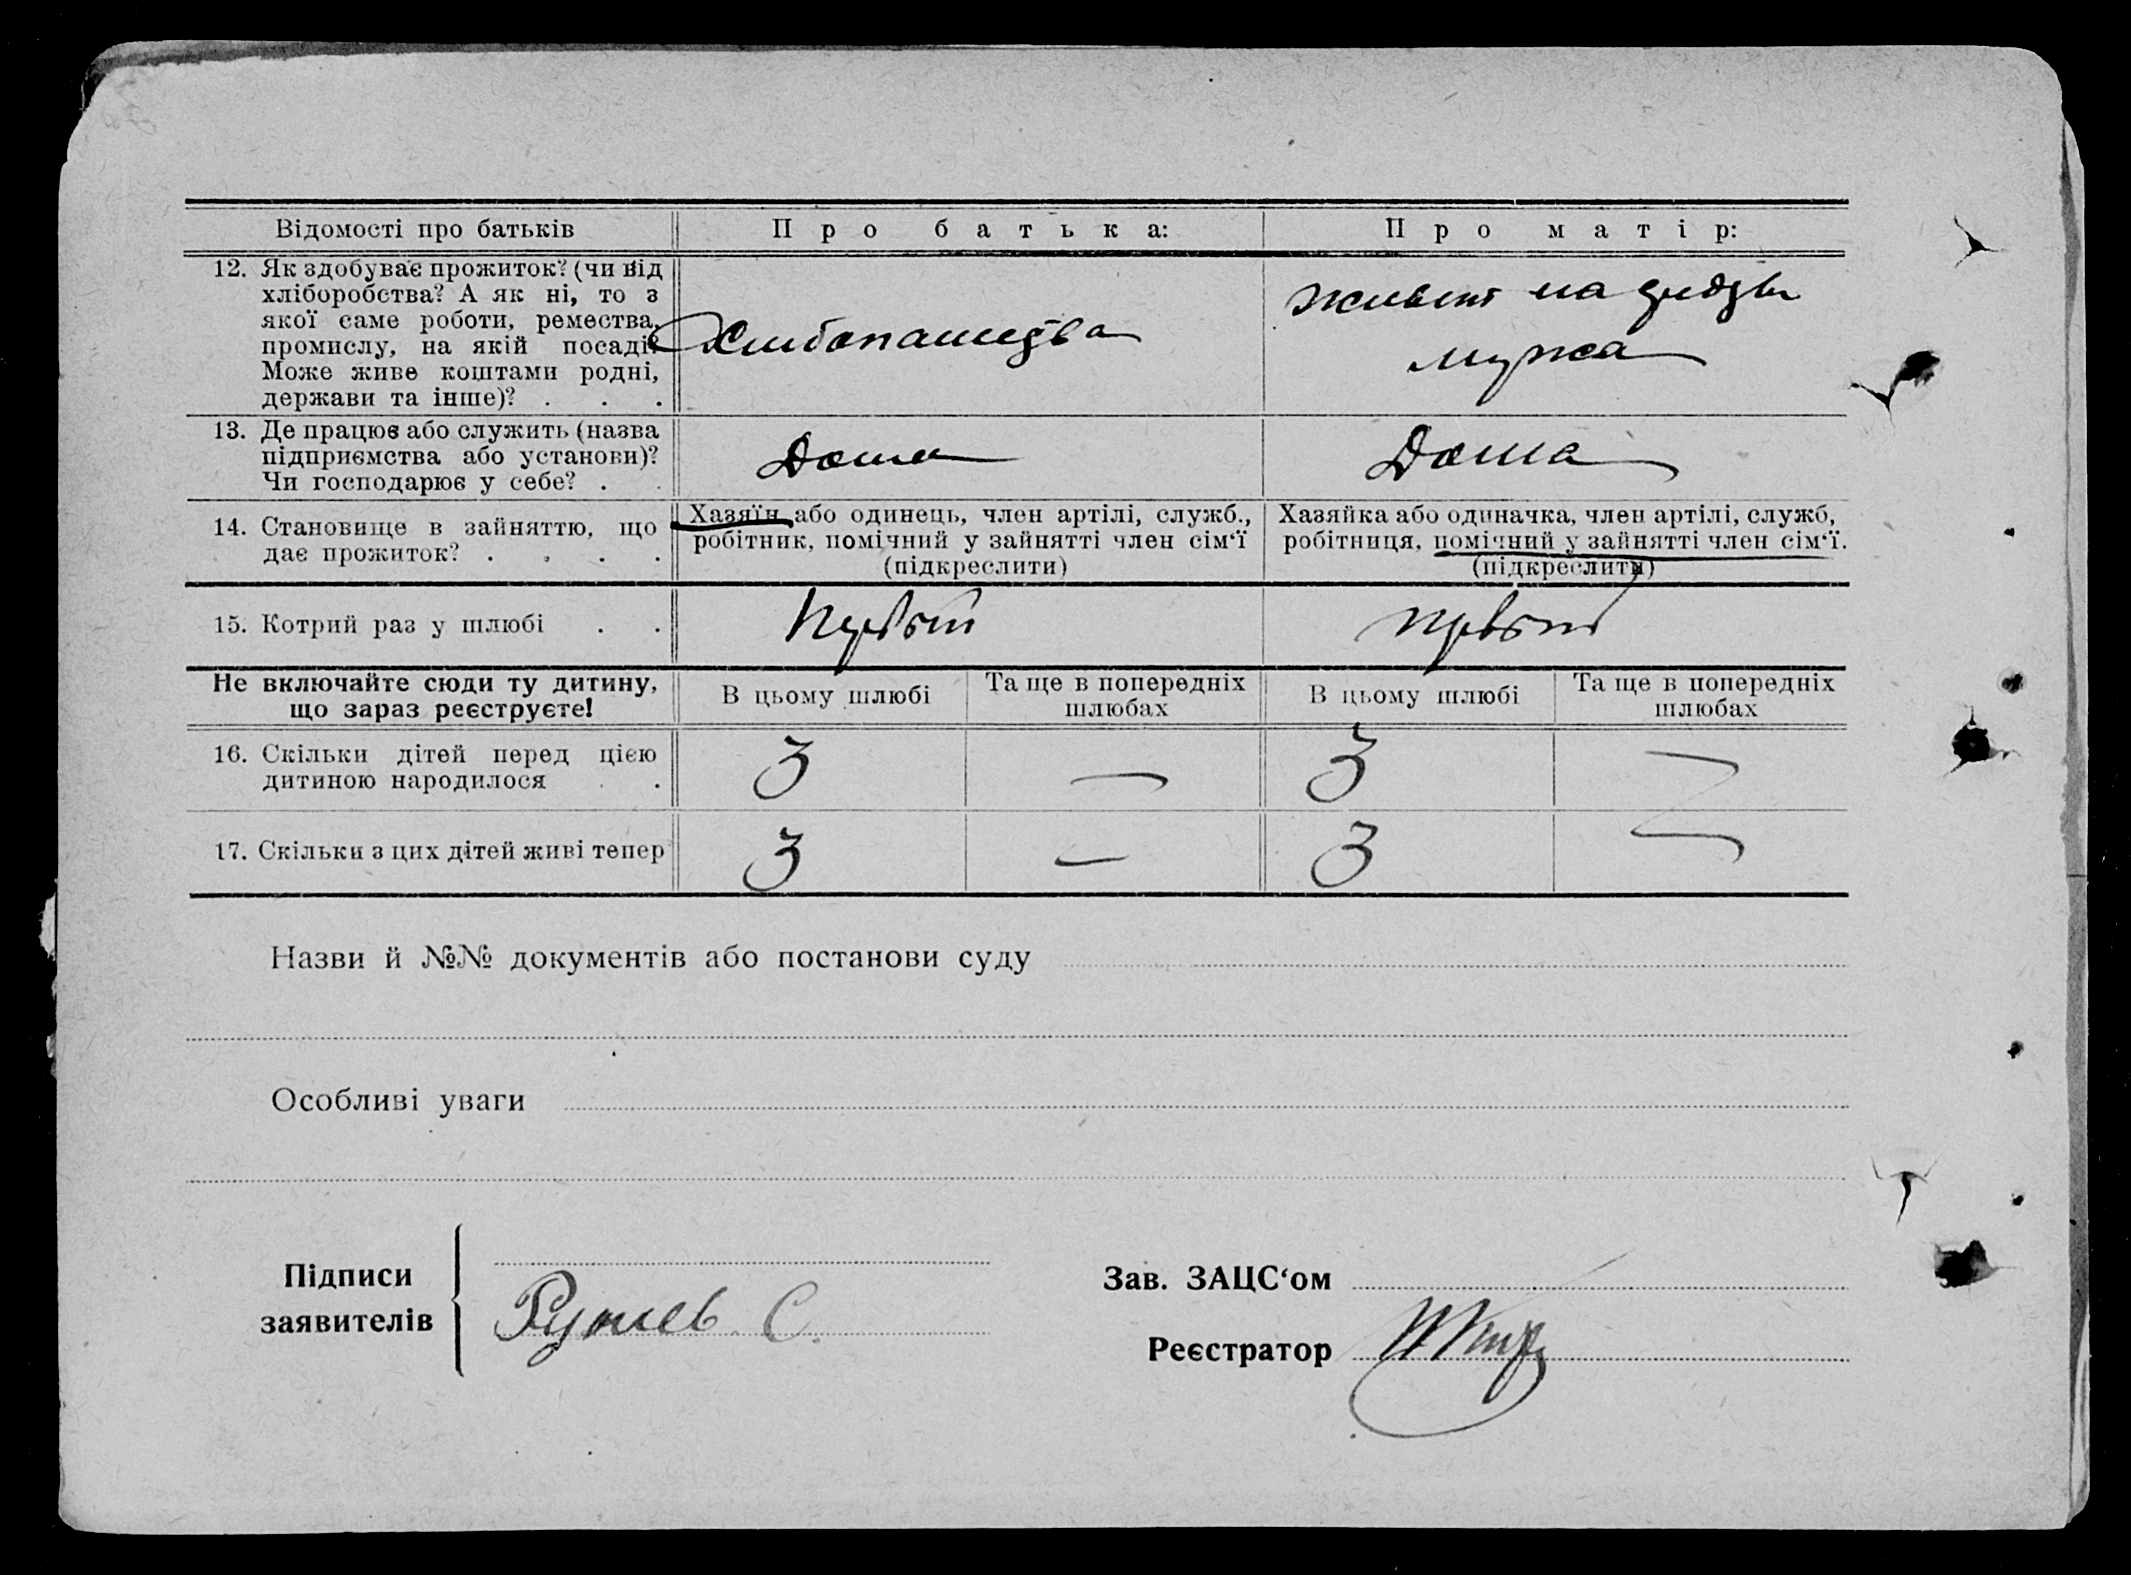 Відомості про батьків
Про батька:
Про матір:
12. Як здобуває прожиток? (чи від
хліборобства? А як ні, то з
якої саме роботи, ремества,
промислу, на якій посаді?
Може живе коштами родні,
держави та інше)? . . .
на
мужа
13. Де працює або служить (назва
підприємства або установи)?
Чи господарює у себе? . .
Дома
Дома
14. Становище в зайняттю, що
дає прожиток? . . . .
Хазяїн або одинець, член артілі, служб.,
робітник, помічний у зайнятті член сім‘ї
(підкреслити)
Хазяйка або одиначка, член артілі, служб,
робітниця, помічний у зайнятті член сім‘ї.
(підкреслити)
15. Котрий раз у шлюбі . .
Не включайте сюди ту дитину,
що зараз реєструєте!
В цьому шлюбі
Та ще в попередніх
шлюбах
В цьому шлюбі
Та ще в попередніх
шлюбах
16. Скільки дітей перед цією
дитиною народилося . .
3
—
3
—
17. Скільки з цих дітей живі тепер
3
—
3
—
Назви й №№ документів або постанови суду
Особливі уваги
Підписи
заявителів
С.
Зав. ЗАЦС‘ом
Реєстратор